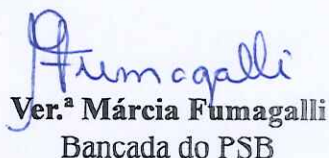 Fumagalli
Ver.ª Márcia Fumagalli
Bancada do PSB